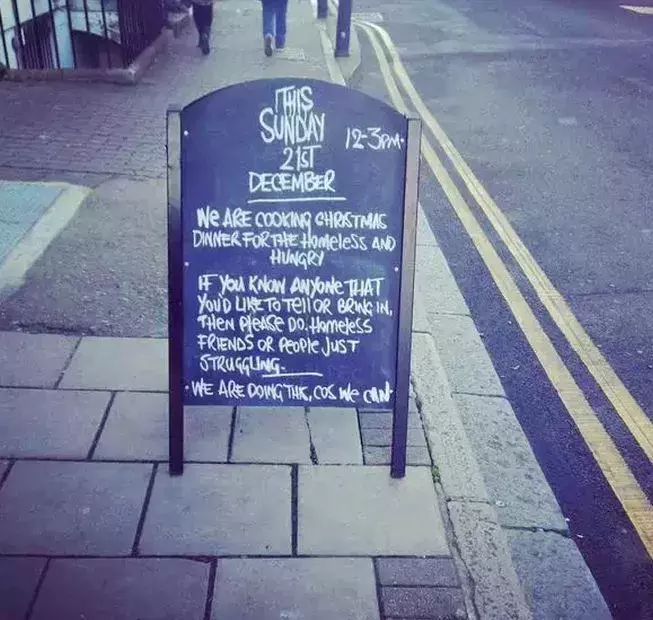 THIS
SUNDAY 12-3PM.
21ST
DECEMBER
WE ARE COOKING CHRISTMAS
DINNER FOR THE HOMELESS AND
HUNGRY
IF YOU KNOW ANYONE THAT
YOU'D LIKE TO TELL OR BRING IN,
THEN PLEASE DO. HOMELESS
FRIENDS OR PEOPLE JUST
STRUGGLING.
WE ARE DOING THIS, COS WE CAN